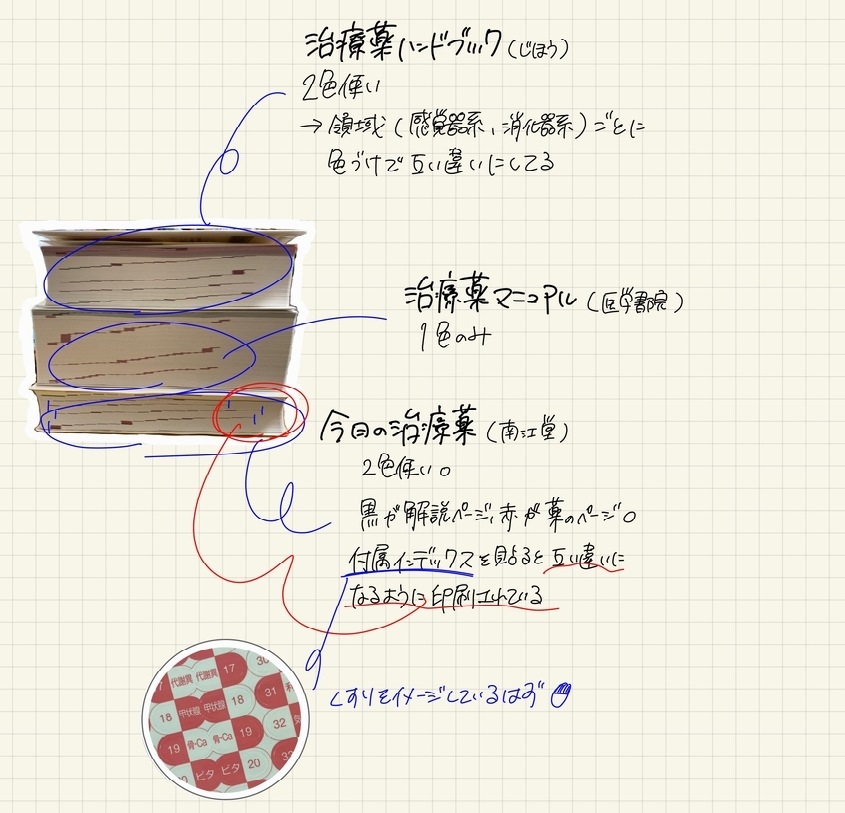 治療薬ハンドブック(じほう)
2色使い
→領域(感覚器系、消化器系)ごとに
色づけで互い違いにしてる
治療薬マニュアル(医学書院)
1色のみ
今日の治療薬(南江堂)
2色使い。
黒が解説ページ、赤が薬のページ。
付属インデックスを貼ると互い違いに
なるように印刷されている
くすりをイメージしているはず
代謝異 代謝異 17 30
18 甲状腺 甲状腺 18 31
19 骨・Ca 骨・Ca 19 32
ビタ ビタ 20